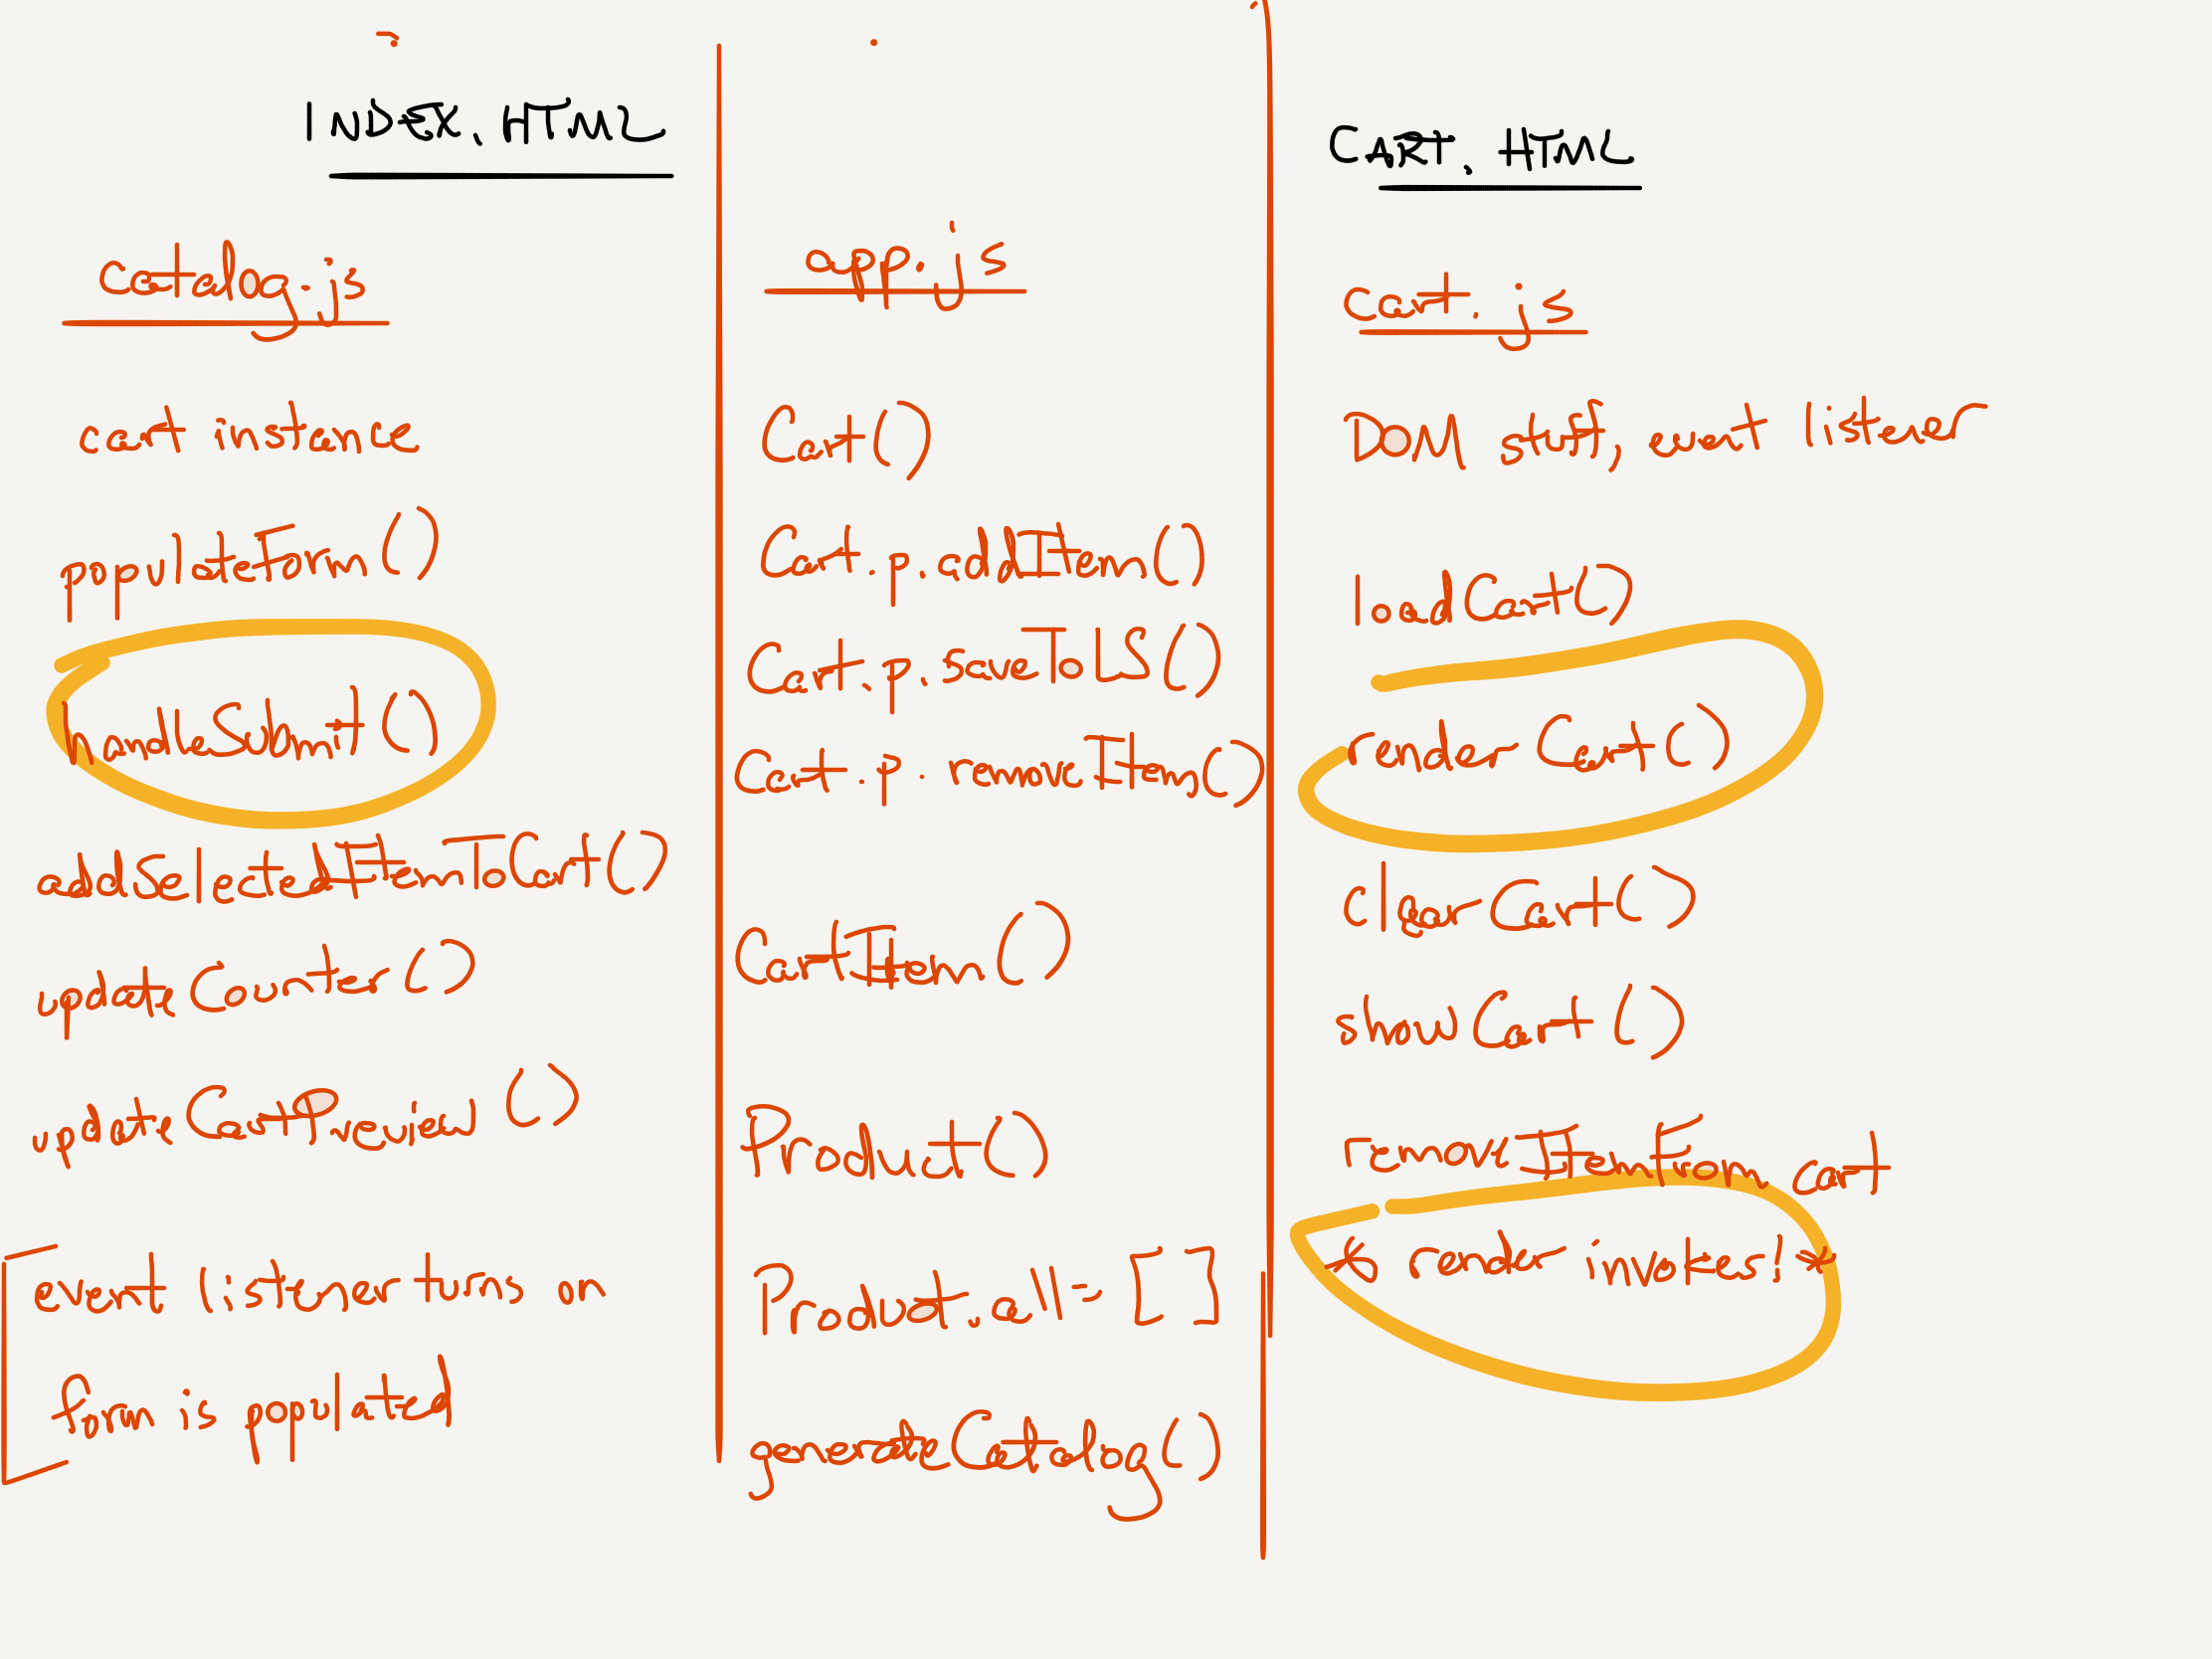 INDEX.HTML
catalog.js
cart instance
populateForm()
handleSubmit()
addSelectedItemToCart()
updateCounter()
updateCartPreview()
event listener turns on
form is populated
app.js
Cart()
Cart.p.addItem()
Cart.p.saveToLS()
Cart.p.removeItem()
CartItem()
Product()
Product.all = []
generateCatalog()
CART.HTML
cart.js
DOM stuff, event listener
loadCart()
renderCart()
clearCart()
showCart()
removeItemFromCart
* render invokes! *